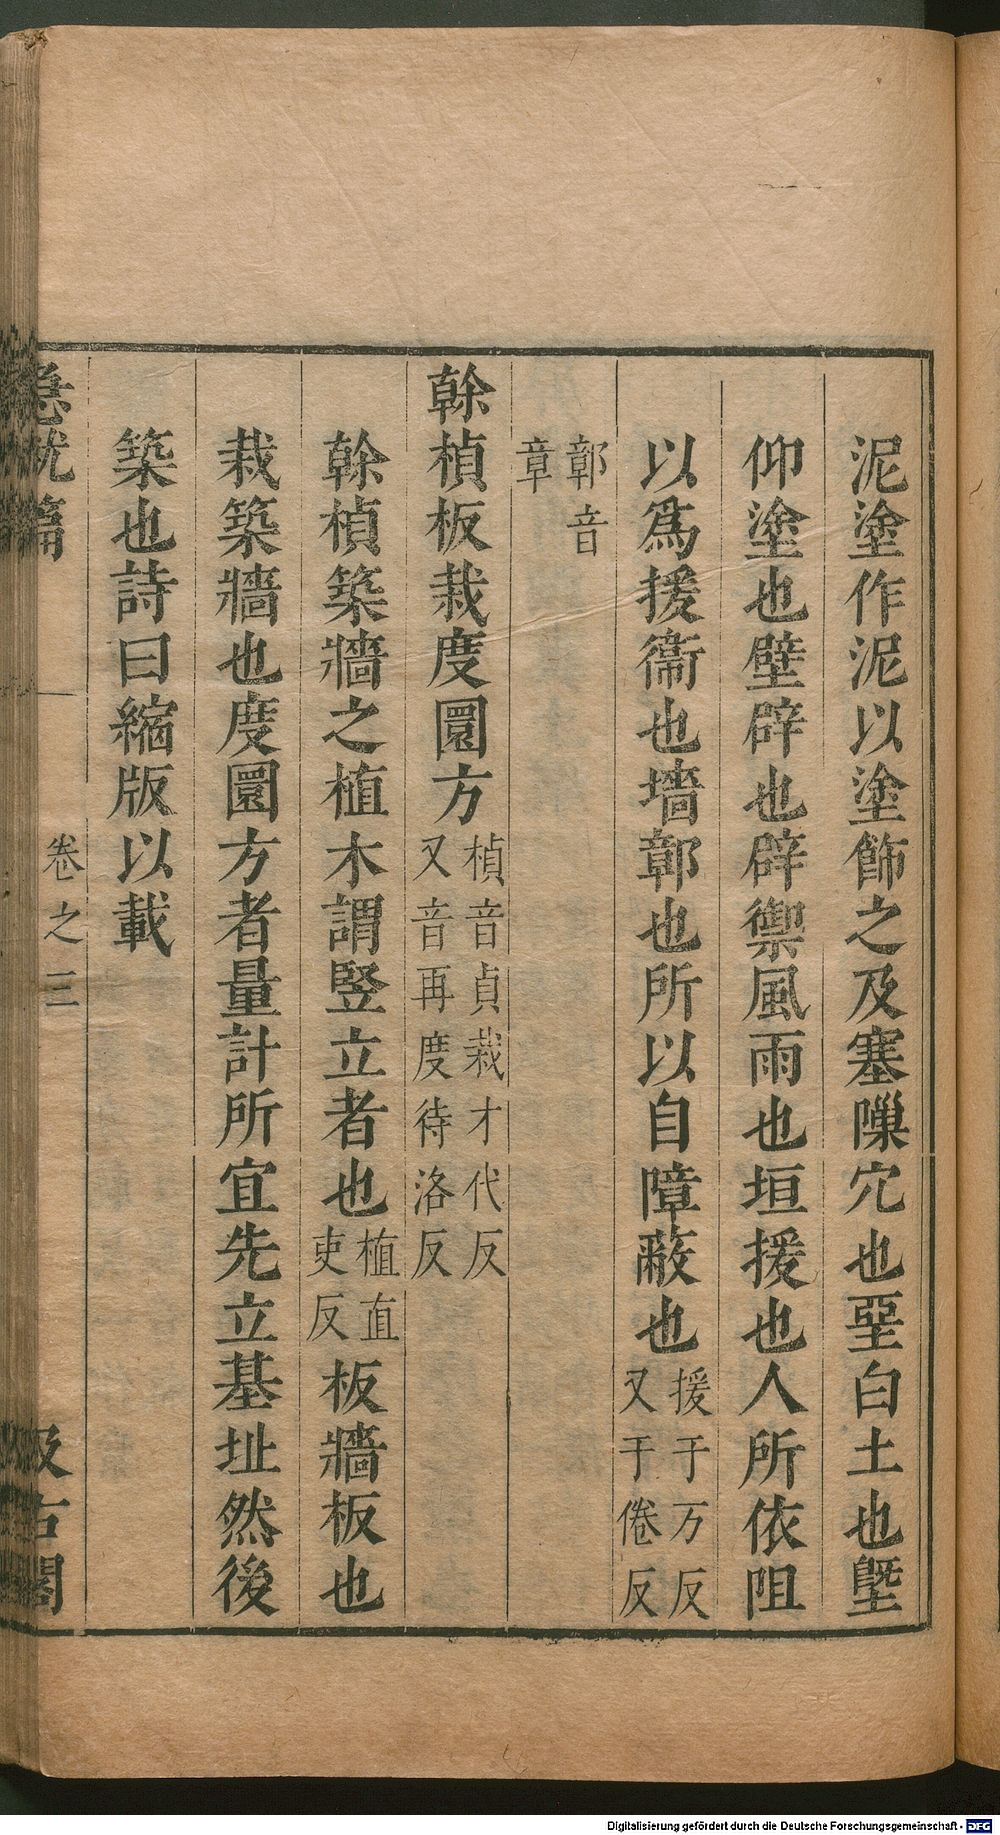 泥塗作泥以塗飾之及塞㘿穴也堊白土也墍
仰塗也壁辟也辟禦風雨也垣援也人所依阻
以爲援衞也墻鄣也所以自障蔽也援于万反又于倦反
鄣音章
榦楨板栽度圜方楨音貞栽才代反又音再度待洛反
榦楨築牆之植木謂竪立者也植直吏反板牆板也
栽築牆也度圜方者量計所宜先立基址然後
築也詩曰縮版以載
急就篇 卷之三 汲古閣
Digitalisierung gefördert durch die Deutsche Forschungsgemeinschaft - DFG